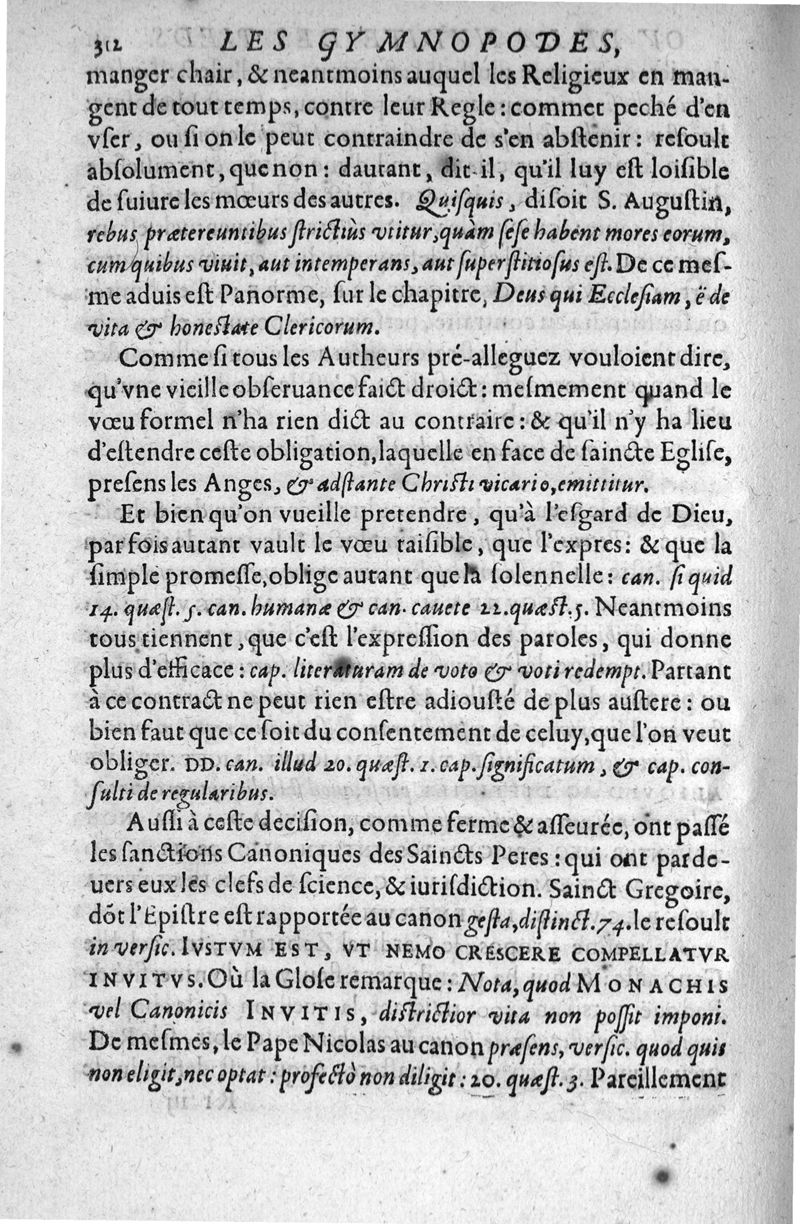 312 LES GYMNOPODES,
manger chair, & neantmoins auquel les Religieux en man-
gent de tout temps, contre leur Regle: commet peché d'en
vſer, ou ſi on le peut contraindre de s'en abſtenir: reſoult
abſolument, que non: dautant, dit-il, qu'il luy eſt loiſible
de ſuiure les mœurs des autres. Quiſquis, diſoit S. Auguſtin,
rebus prætereuntibus ſtrictiùs vtitur, quàm ſeſe habent mores eorum,
cum quibus viuit, aut intemperans, aut ſuperſtitioſus eſt. De ce meſ-
me aduis eſt Panorme, ſur le chapitre, Deus qui Eccleſiam, ë de
vita & honeſtate Clericorum.
Comme ſi tous les Autheurs pré-alleguez vouloient dire,
qu'vne vieille obſeruance faict droict: meſmement quand le
vœu formel n'ha rien dict au contraire: & qu'il n'y ha lieu
d'eſtendre ceſte obligation, laquelle en face de ſaincte Egliſe,
preſens les Anges, & adſtante Chriſti vicario, emittitur.
Et bien qu'on vueille pretendre, qu'à l'eſgard de Dieu,
par fois autant vault le vœu taiſible, que l'expres: & que la
ſimple promeſſe, oblige autant que la ſolennelle: can. ſi quid
14. quæſt. 5. can. humanæ & can. cauete 22. quæſt. 5. Neantmoins
tous tiennent, que c'eſt l'expreſſion des paroles, qui donne
plus d'efficace: cap. literaturam de voto & voti redempt. Partant
à ce contract ne peut rien eſtre adiouſté de plus auſtere: ou
bien faut que ce ſoit du conſentement de celuy, que l'on veut
obliger. DD. can. illud 20. quæſt. 1. cap. ſignificatum, & cap. con-
ſulti de regularibus.
Auſſi à ceſte deciſion, comme ferme & aſſeurée, ont paſſé
les ſanctions Canoniques des Saincts Peres: qui ont parde-
uers eux les clefs de ſcience, & iuriſdiction. Sainct Gregoire,
dõt l'Epiſtre eſt rapportée au canon geſta, diſtinct. 74. le reſoult
in verſic. IVSTVM EST, VT NEMO CRESCERE COMPELLATVR
INVITVS. Où la Gloſe remarque: Nota, quod MONACHIS
vel Canonicis INVITIS, diſtrictior vita non poſſit imponi.
De meſmes, le Pape Nicolas au canon præſens, verſic. quod quis
non eligit, nec optat: profectò non diligit: 20. quæſt. 3. Pareillement